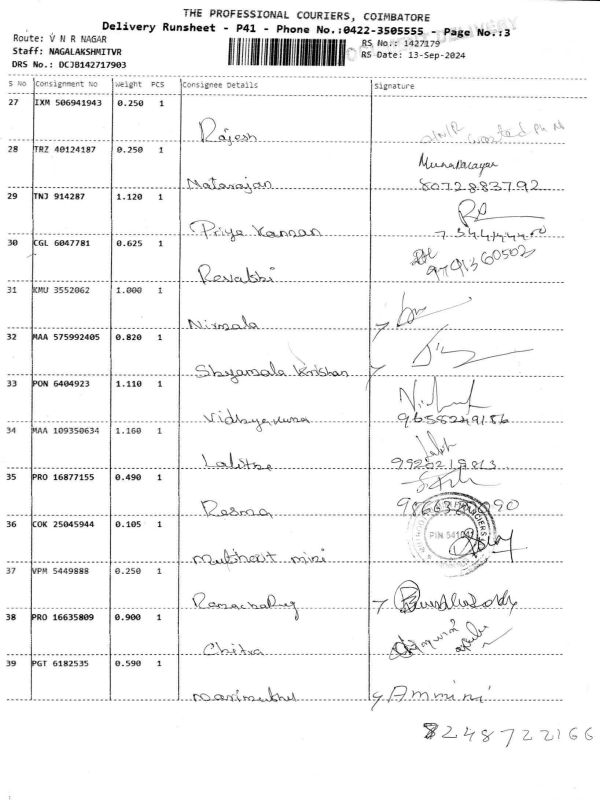 THE PROFESSIONAL COURIERS, COIMBATORE
Delivery Runsheet - P41 - Phone No.:0422-3505555 - Page No.:3
Route: V N R NAGAR
RS No.: 1427179
Staff: NAGALAKSHMITVR
RS Date: 13-Sep-2024
DRS No.: DCJB142717903
S No Consignment No Weight PCS Consignee Details Signature
27 IXM 506941943 0.250 1
Rajesh
28 TRZ 40124187 0.250 1
Natarajan 8072883792
29 TNJ 914287 1.120 1
Priya Kannan
30 CGL 6047781 0.625 1
9791360502
Revathi
31 KMU 3552062 1.000 1
Nirmala
32 MAA 575992405 0.820 1
Shyamala Krishan
33 PON 6404923 1.110 1
Vidhyakumar 9655249186
34 MAA 109350634 1.160 1
Lalitha 9920219813
35 PRO 16877155 0.490 1
Rasma
36 COK 25045944 0.105 1
mini
37 VPM 5449888 0.250 1
38 PRO 16635809 0.900 1
Chitra
39 PGT 6182535 0.590 1
Marimuthu Ammini
8248722166